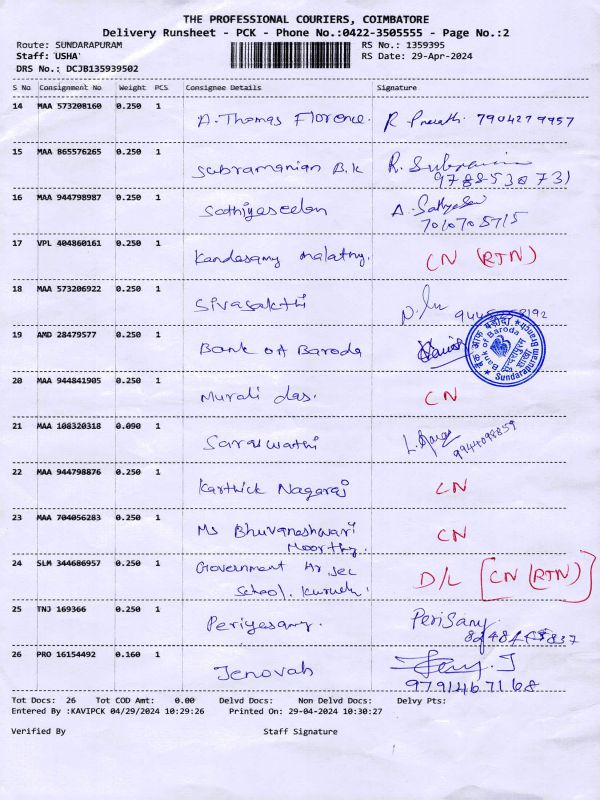 THE PROFESSIONAL COURIERS, COIMBATORE
Delivery Runsheet - PCK - Phone No.:0422-3505555 - Page No.:2
Route: SUNDARAPURAM RS No.: 1359395
Staff: 'USHA' RS Date: 29-Apr-2024
DRS No.: DCJB135939502
S No Consignment No Weight PCS Consignee Details Signature
14 MAA 573208160 0.250 1 A. Thomas Florence. R 7904279957
15 MAA 865576265 0.250 1 Subramanian B.K R.
9788530731
16 MAA 944798987 0.250 1 Sathiyaseelan A.
7010705715
17 VPL 404860161 0.250 1 Kandasamy malathy. CN (RTN)
18 MAA 573206922 0.250 1 Sivasakthi
19 AMD 28479577 0.250 1 Bank of Baroda
Bank of Baroda
Sundarapuram Branch
20 MAA 944841905 0.250 1 Murali das. CN
21 MAA 108320318 0.090 1 Saraswathi L.
9944098859
22 MAA 944798876 0.250 1 Karthick Nagaraj CN
23 MAA 704056283 0.250 1 Ms Bhuvaneshwari CN
Moorthy.
24 SLM 344686957 0.250 1 Government Hr Sec D/L [CN (RTN)]
School.
25 TNJ 169366 0.250 1 Periyesamy. PeriSamy
26 PRO 16154492 0.160 1 Jenovah
9791467168
Tot Docs: 26 Tot COD Amt: 0.00 Delvd Docs: Non Delvd Docs: Delvy Pts:
Entered By :KAVIPCK 04/29/2024 10:29:26 Printed On: 29-04-2024 10:30:27
Verified By Staff Signature